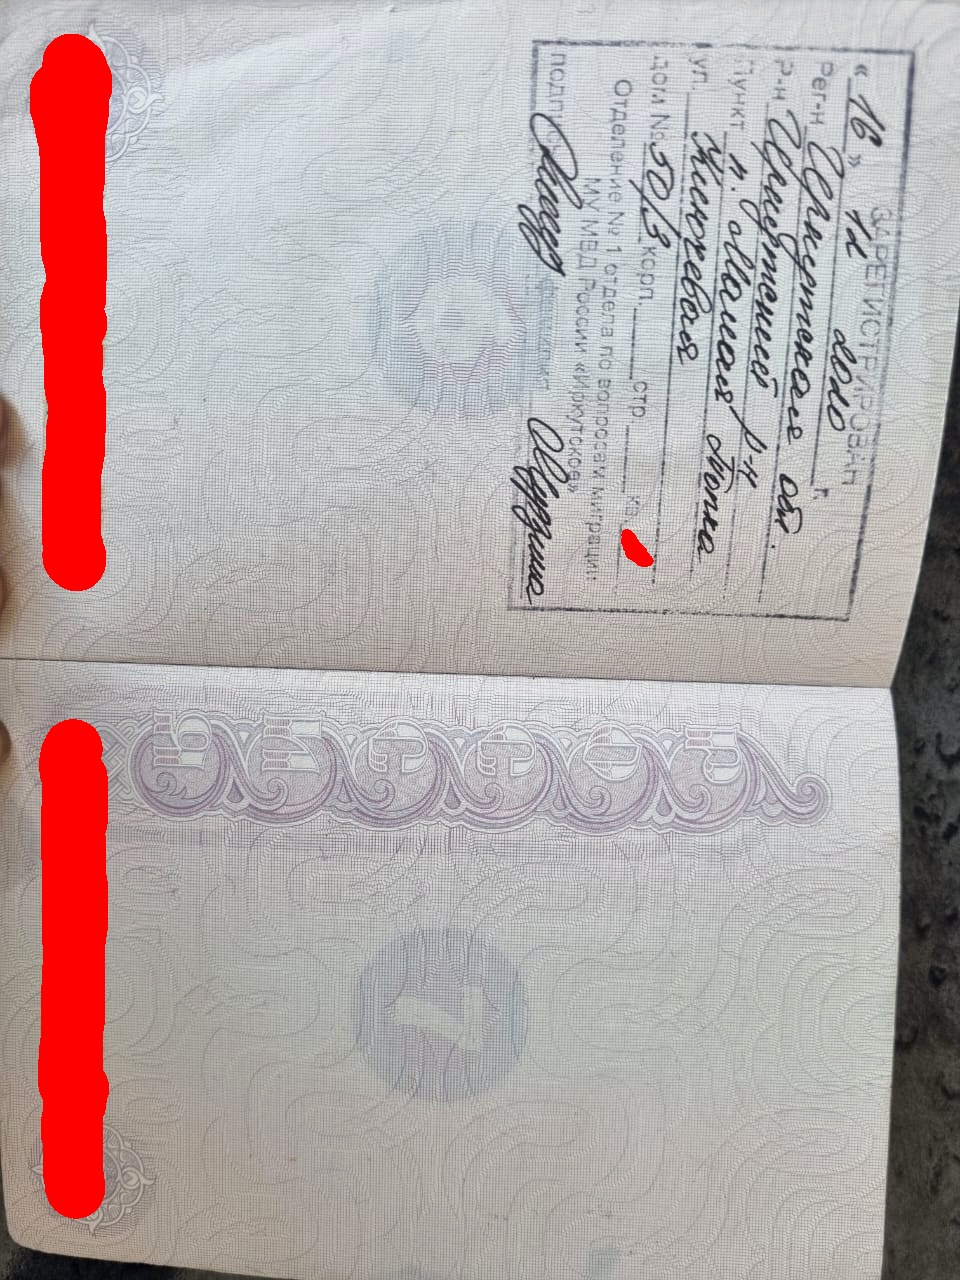 ЗАРЕГИСТРИРОВАН
« 16 » 12 2020 г.
Рег-н Иркутская обл.
Р-н Иркутский р-н
Пункт п. Малая Топка
ул. Ключевая
дом № 50/3 корп. стр. кв.
Отделение № 1 отдела по вопросам миграции
МУ МВД России «Иркутское»
7